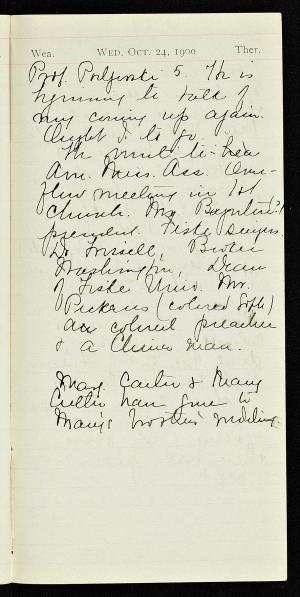 Wea. WED. OCT. 24, 1900 Ther.
Prof. 5. He is
beginning to talk of
my coming up again.
Ought I to go.
In aft. to hear
Am. Miss. Ass. Over-
flow meeting in 1st
Church. Mr.
president. Fiske singers.
Dr. Booker
Washington, Dean
of Fiske Univ. Mr.
Pickens (colored Soph)
a colored preacher
& a China man.
Mary Carter & Mary
have gone to
Mary's brother's wedding.